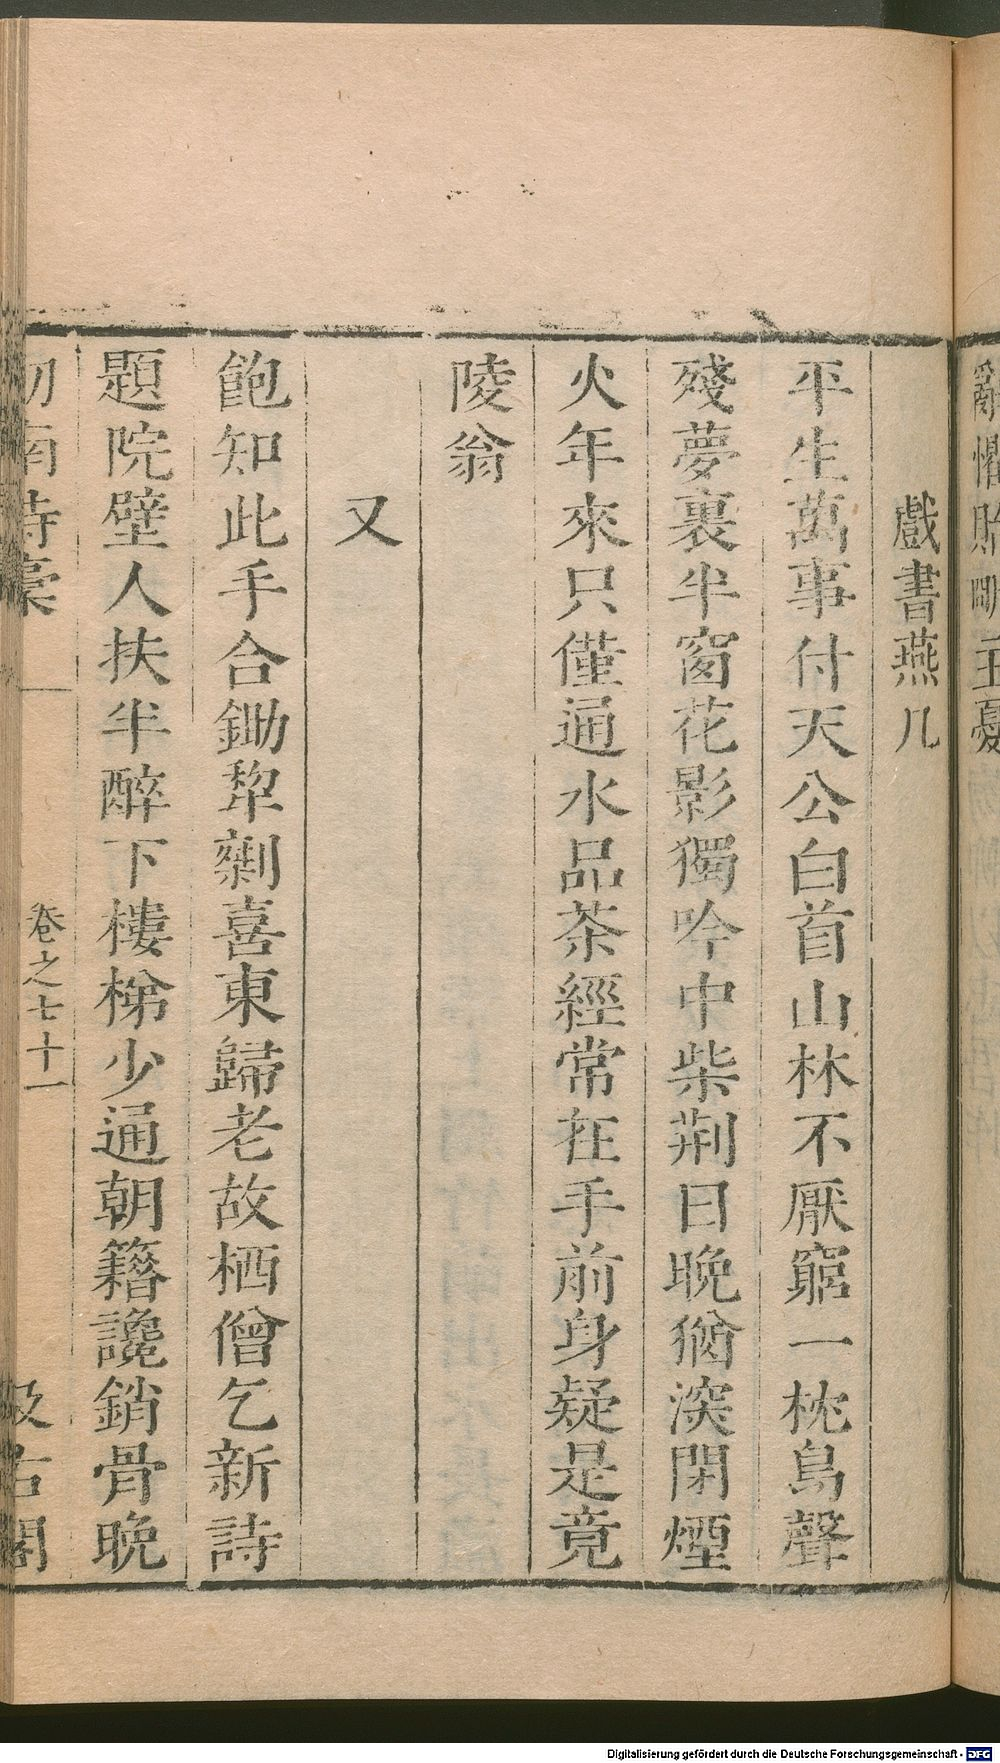 戲書燕几
平生萬事付天公白首山林不厭窮一枕鳥聲
殘夢裏半窗花影獨吟中柴荆日晚猶深閉煙
火年來只僅通水品茶經常在手前身疑是竟
陵翁
又
飽知此手合鋤犂剩喜東歸老故栖僧乞新詩
題院壁人扶半醉下樓梯少通朝籍讒銷骨晚
劒南詩稾
卷之七十一
汲古閣
Digitalisierung gefördert durch die Deutsche Forschungsgemeinschaft - DFG